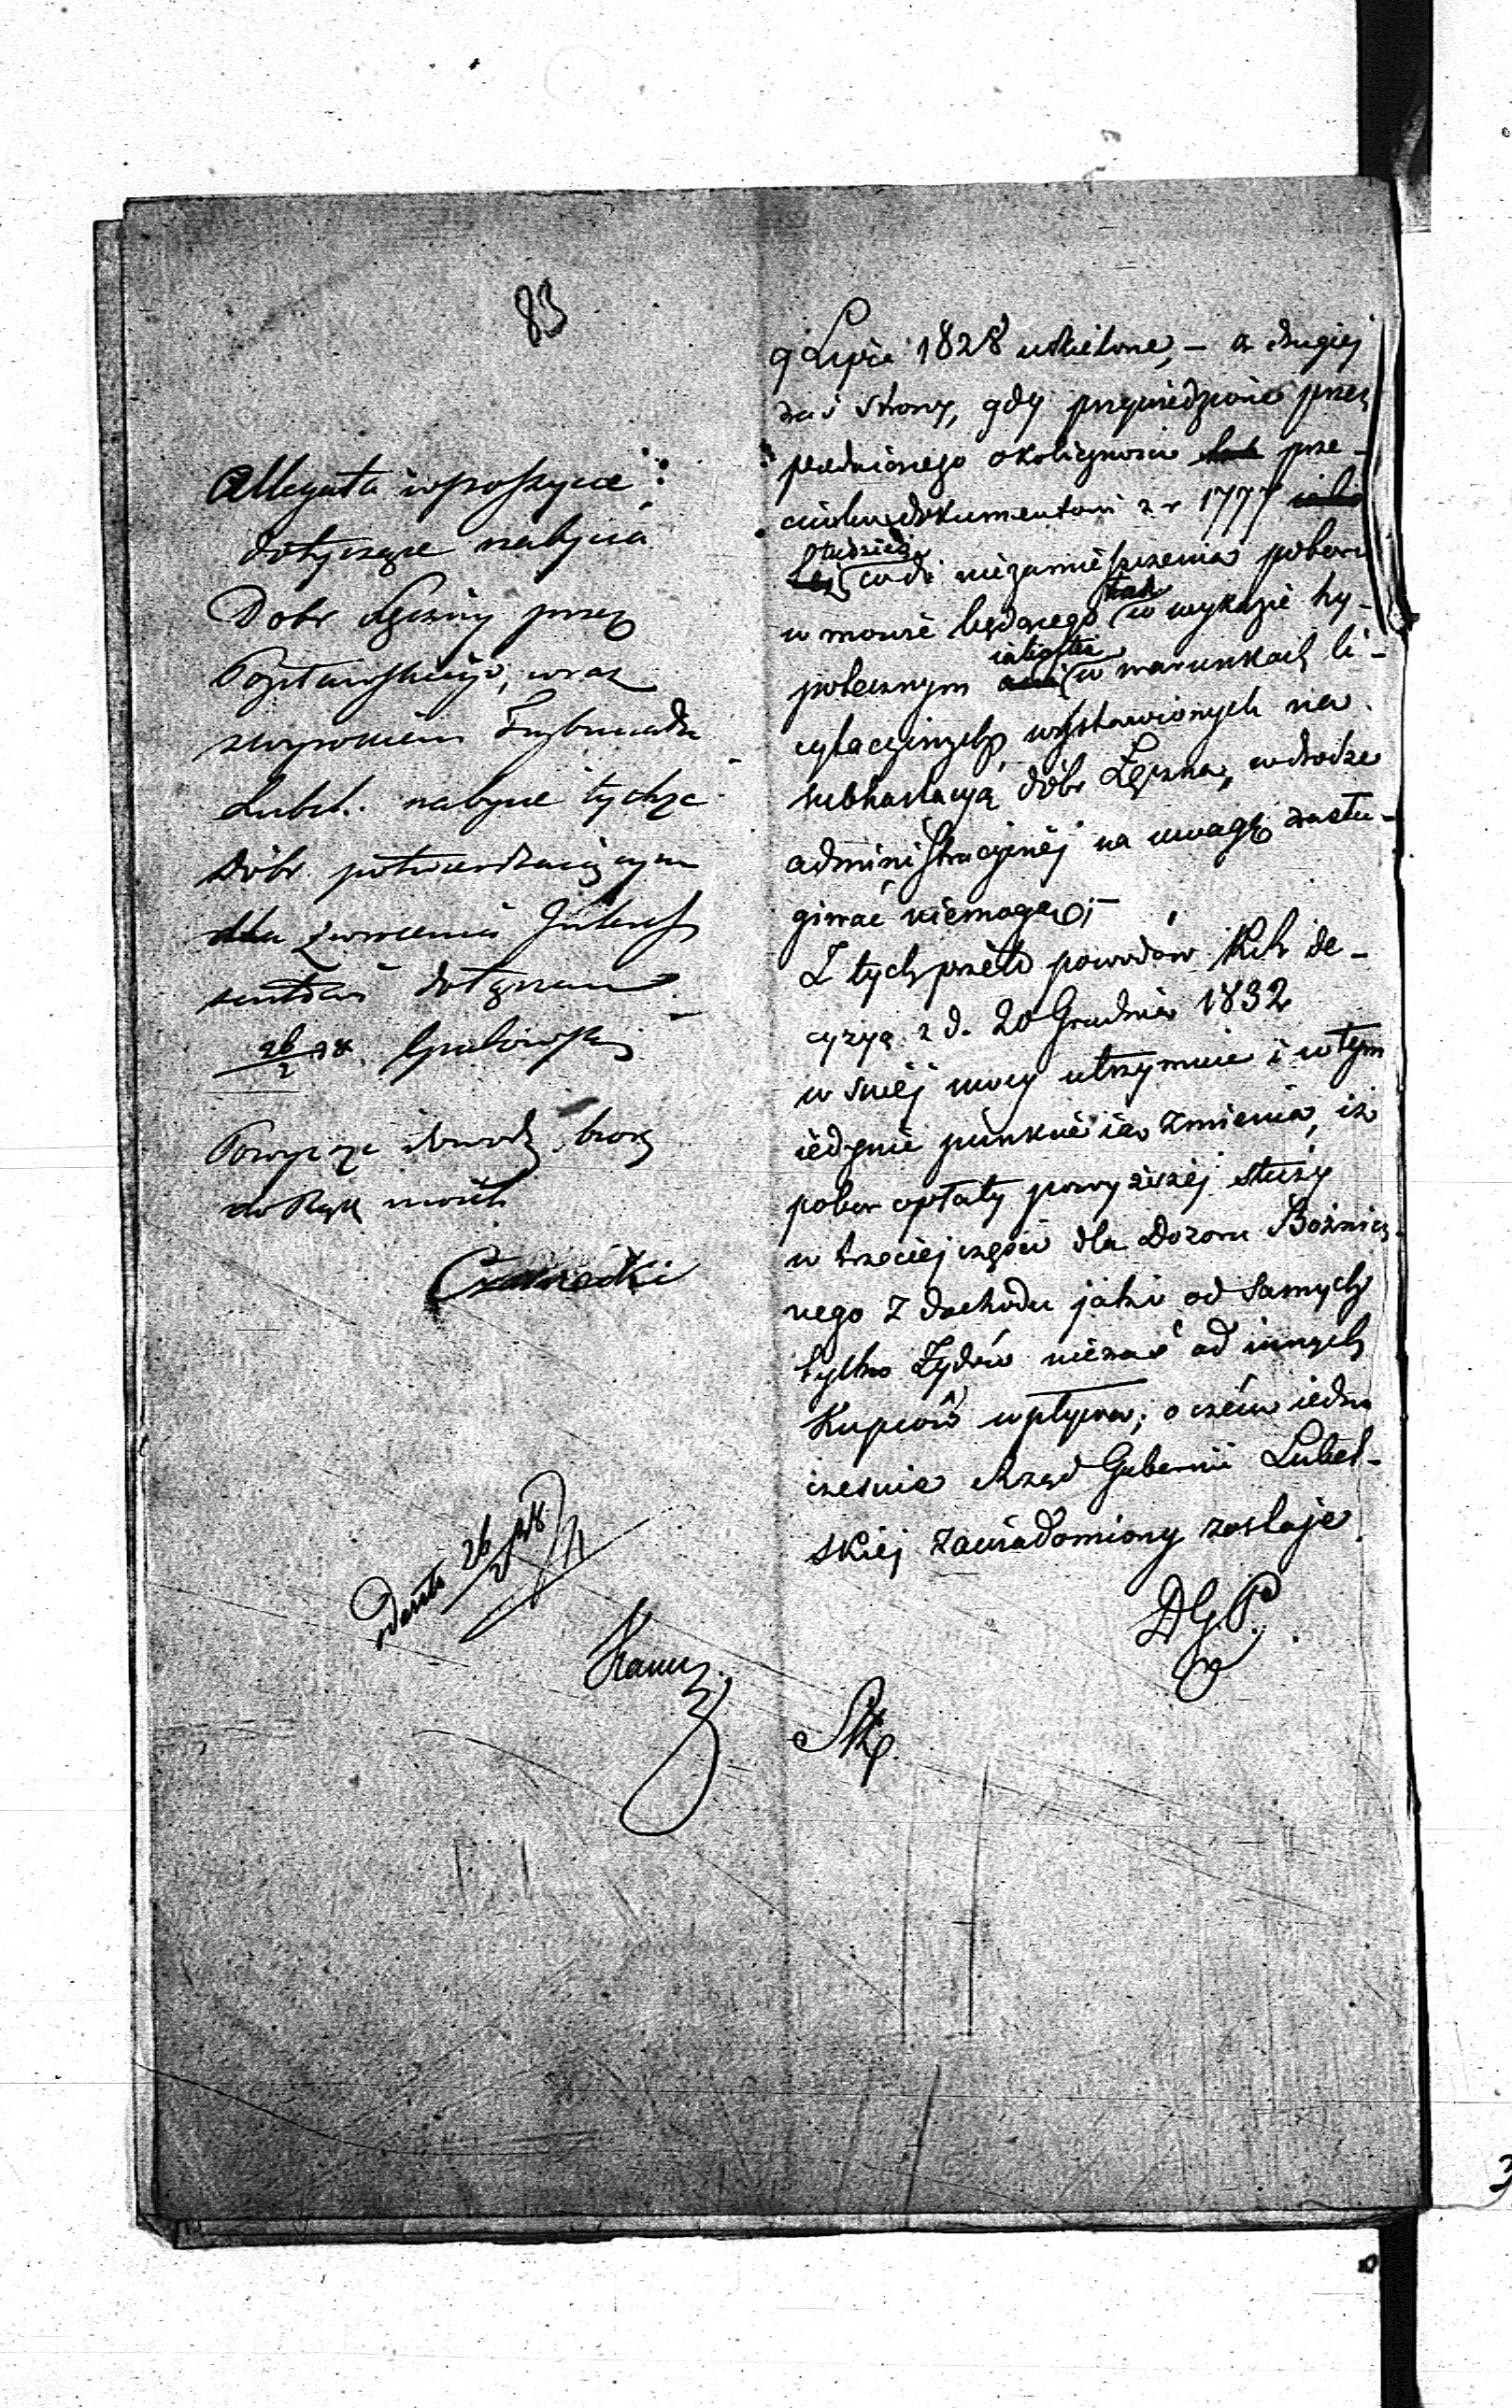 83
Allegata w poszycie
dotyczące nabycia
Dóbr Łęczny przez
wraz
z wyrokiem Trybunału
Lubel. nabycie tychże
Dóbr potwierdzającym
dla zwrócenia
dołączam
26/2 38. Grabowski
Powyższe dowody biorę
do Rąk moich
Czarnecki
26/2 38
9 Lipca 1828 udzielone, – z drugiej
zaś strony, gdy przywiedzione przez
poprzedniego okoliczności prze-
ciwko dokumentowi z r 1777
tudzież
co do niezamieszczenia poboru
tak
w mowie będącego w wykazie hy-
iako też
potecznym w warunkach li-
cytacyjnych, wystawionych na
subhastacyą dóbr Łęczna, w drodze
administracyjnéj na uwagę zasłu-
giwać niemogą; –
Z tych przeto powodów KRh de-
cyzyą z d. 20 Grudnia 1832
w swéj mocy utrzymuie i w tym
iedynie punkcie ią zmienia, iż
pobór opłaty powyższéj służy
w trzeciej części dla Dozoru Bóżnicz-
nego z dochodu jaki od samych
tylko Żydów niezaś od innych
Kupców wpływa; o czém iedno
cześnie Rząd Gubernii Lubel-
skiéj zawiadomiony zostaje.
DGP.